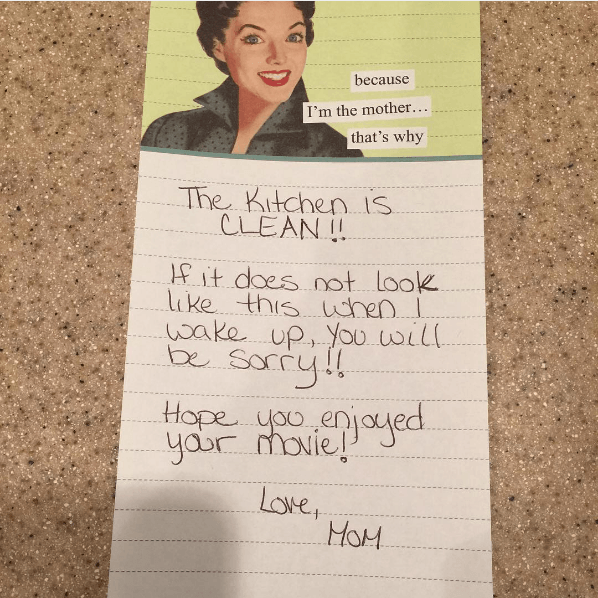 because
I'm the mother...
that's why
The Kitchen is
CLEAN!!
If it does not look
like this when I
wake up, you will
be sorry!!
Hope you enjoyed
your movie!
Love,
Mom